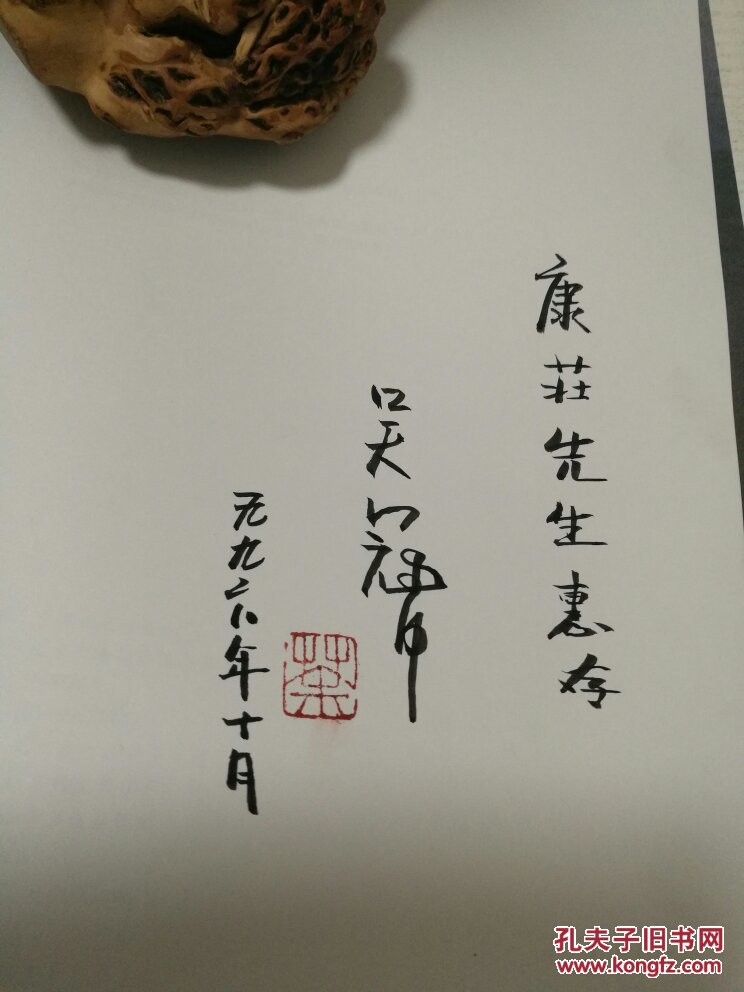 康莊先生惠存
吴冠中
荼
一九九六年十月
孔夫子旧书网
www.kongfz.com